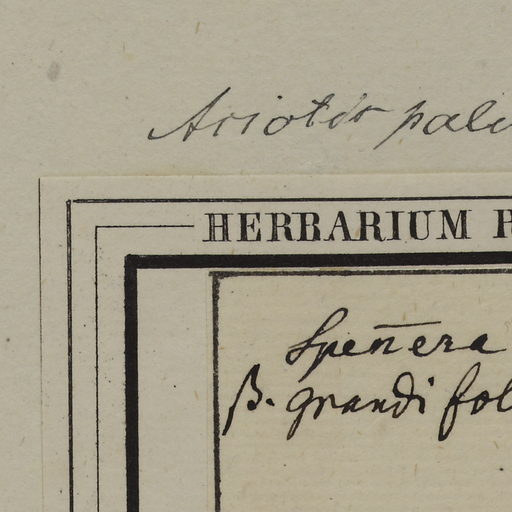 Aciotis palu
HERBARIUM R
Spen̅era
β. grandifol